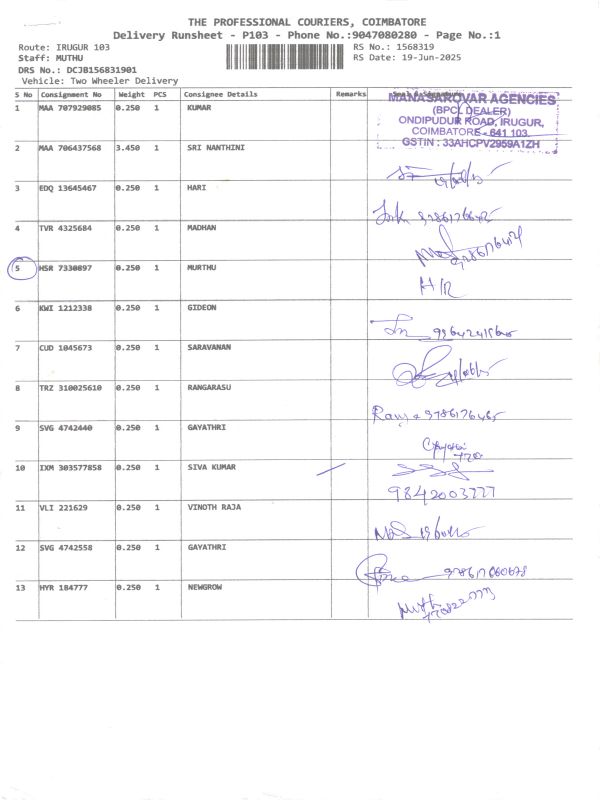 THE PROFESSIONAL COURIERS, COIMBATORE
Delivery Runsheet - P103 - Phone No.:9047080280 - Page No.:1
Route: IRUGUR 103
RS No.: 1568319
Staff: MUTHU
RS Date: 19-Jun-2025
DRS No.: DCJB156831901
Vehicle: Two Wheeler Delivery
S No Consignment No Weight PCS Consignee Details Remarks
MANASAROVAR AGENCIES
(BPCL DEALER)
ONDIPUDUR ROAD, IRUGUR,
COIMBATORE - 641 103.
GSTIN : 33AHCPV2959A1ZH
1 MAA 707929085 0.250 1 KUMAR
2 MAA 706437568 3.450 1 SRI NANTHINI
3 EDQ 13645467 0.250 1 HARI
4 TVR 4325684 0.250 1 MADHAN
5 HSR 7330897 0.250 1 MURTHU
6 KWI 1212338 0.250 1 GIDEON
7 CUD 1045673 0.250 1 SARAVANAN
8 TRZ 310025610 0.250 1 RANGARASU
9 SVG 4742440 0.250 1 GAYATHRI
10 IXM 303577858 0.250 1 SIVA KUMAR
9842003777
11 VLI 221629 0.250 1 VINOTH RAJA
12 SVG 4742558 0.250 1 GAYATHRI
13 HYR 184777 0.250 1 NEWGROW